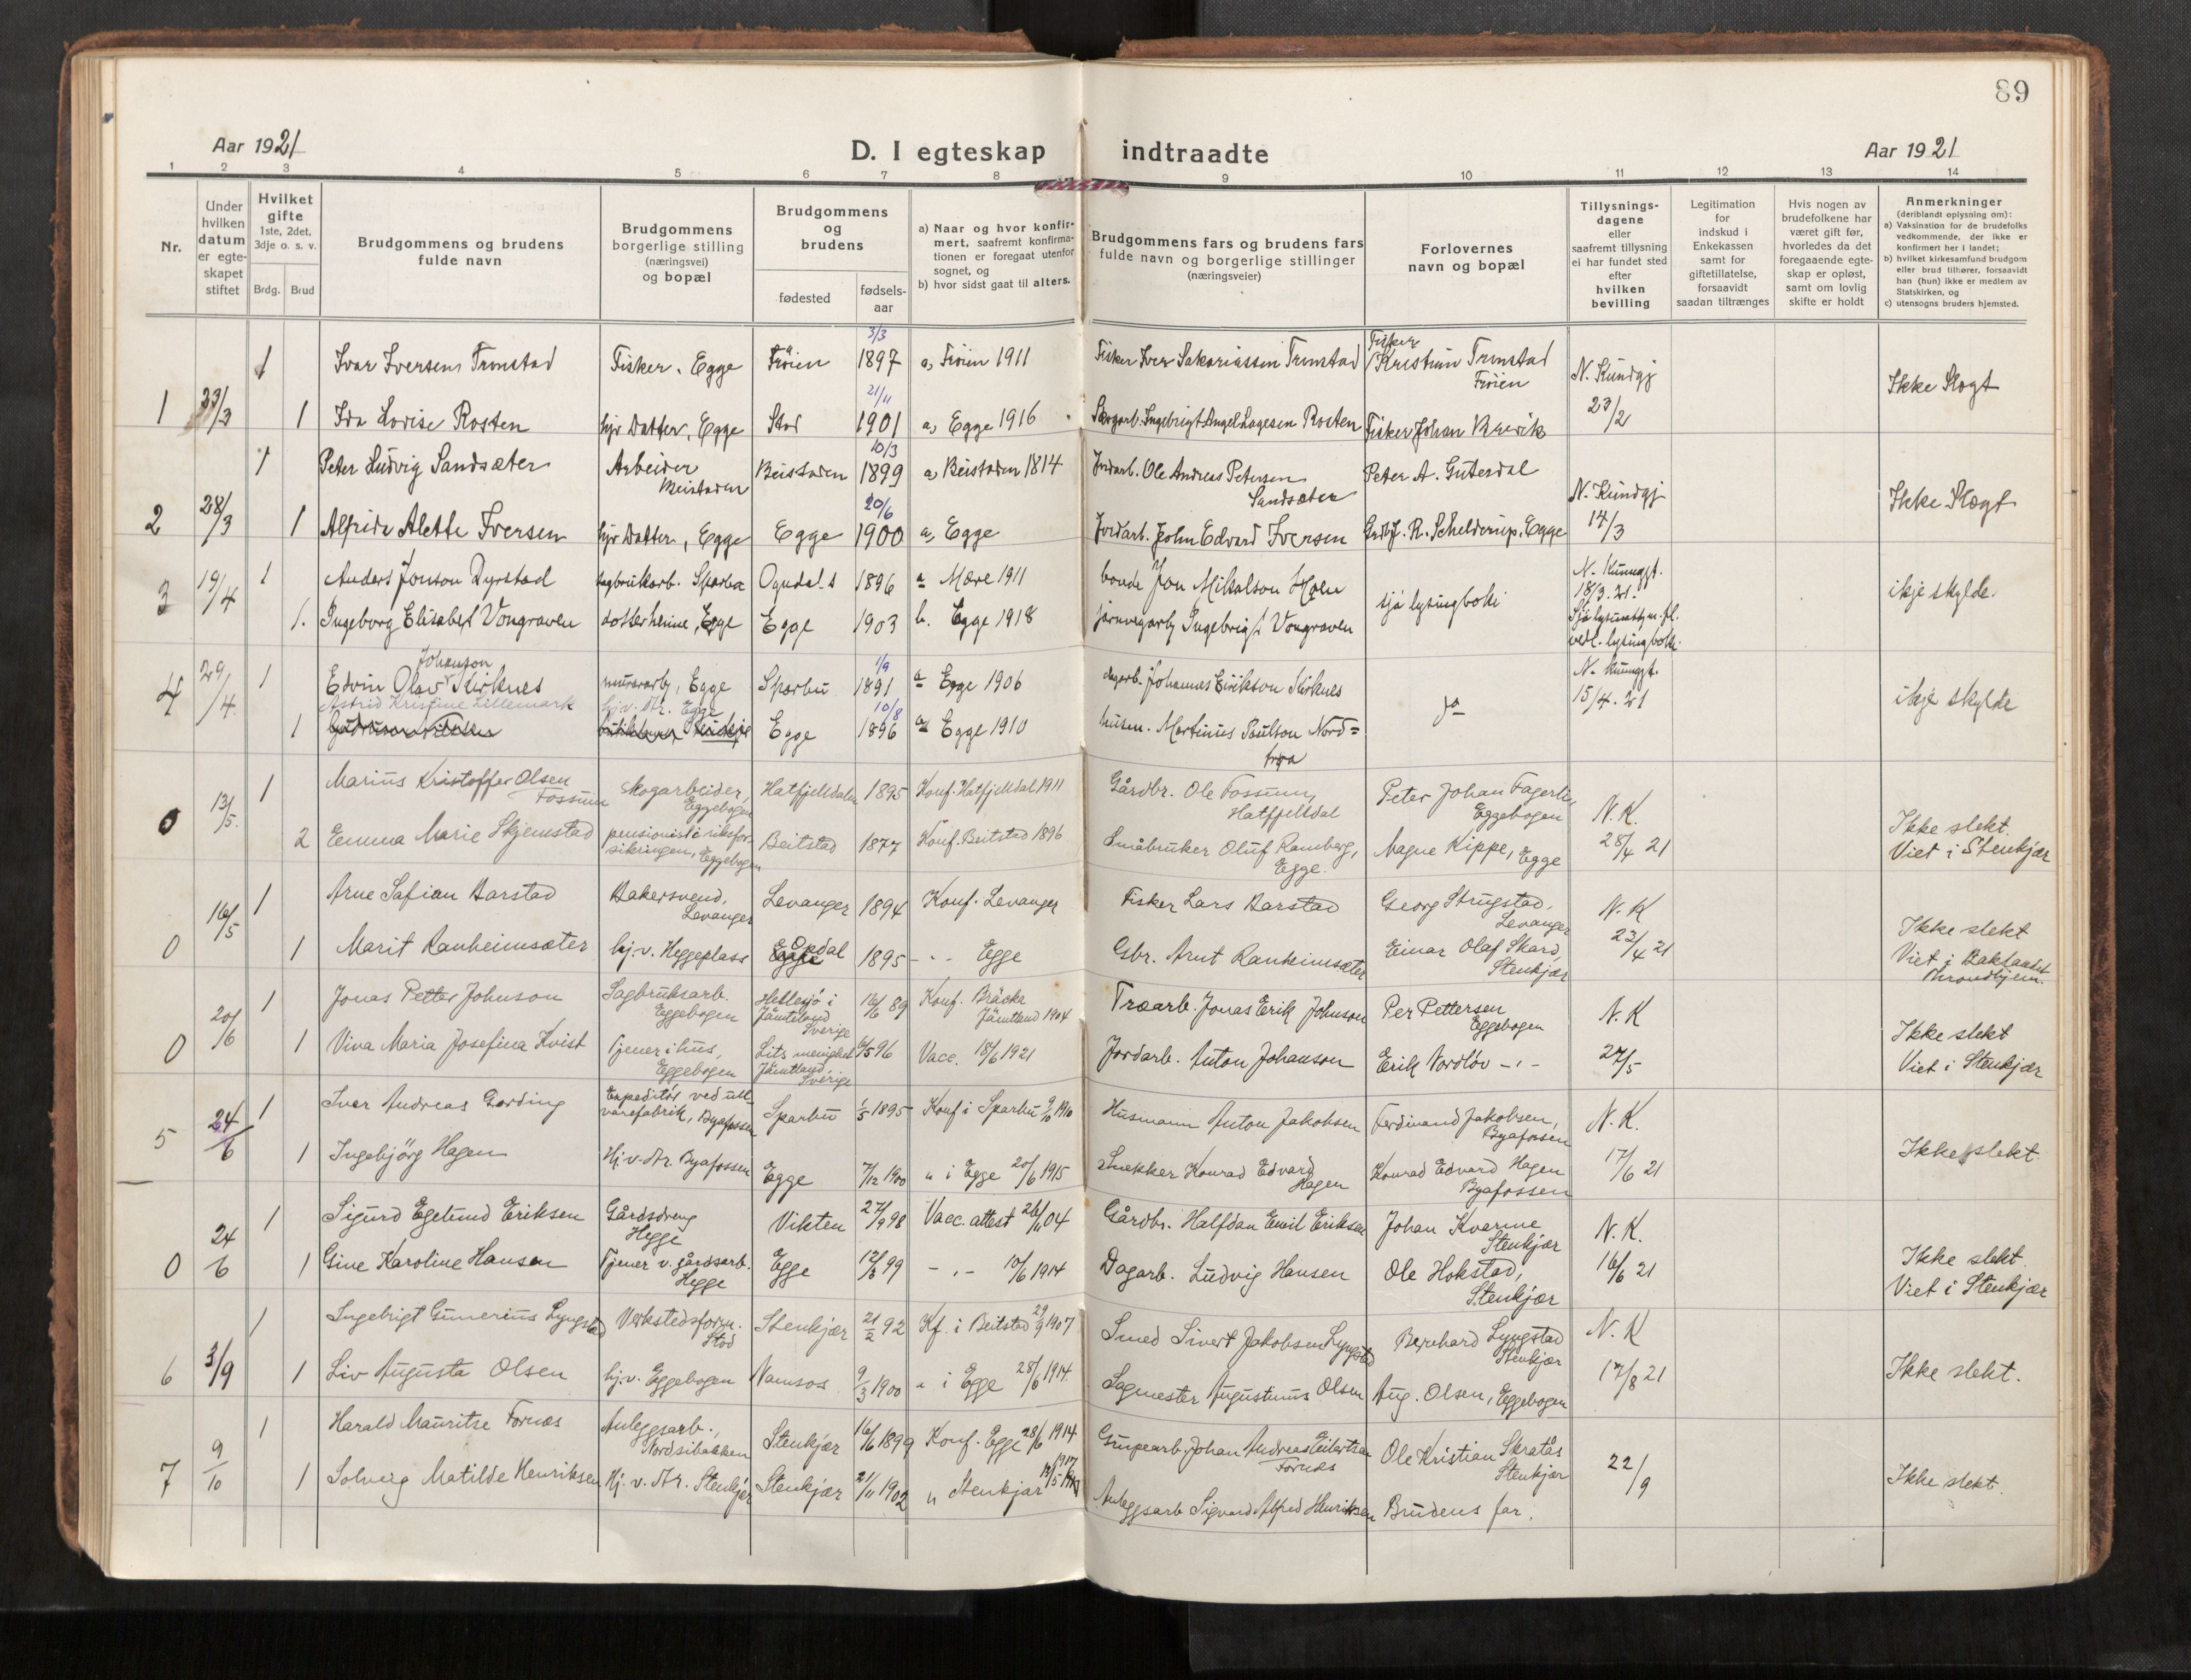 89
Aar 1921
D. I egteskap indtraadte
Aar 1921
1 2 3 4 5 6 7 8 9 10 11 12 13 14
Nr.
Under hvilken datum er egteskapet stiftet
Hvilket gifte 1ste, 2det, 3dje o. s. v.
Brdg. Brud
Brudgommens og brudens fulde navn
Brudgommens borgerlige stilling (næringsvei) og bopæl
Brudgommens og brudens
fødested
fødsels-aar
a) Naar og hvor konfir-
mert, saafremt konfirma-
tionen er foregaat utenfor
sognet, og
b) hvor sidst gaat til alters.
Brudgommens fars og brudens fars
fulde navn og borgerlige stillinger
(næringsveier)
Forlovernes
navn og bopæl
Tillysnings-
dagene
eller
saafremt tillysning
ei har fundet sted
efter
hvilken
bevilling
Legitimation
for
indskud i
Enkekassen
samt for
giftetillatelse,
forsaavidt
saadan tiltrænges
Hvis nogen av
brudefolkene har
været gift før,
hvorledes da det
foregaaende egte-
skap er opløst,
samt om lovlig
skifte er holdt
Anmerkninger
(deriblandt oplysning om):
a) Vaksination for de brudefolks
vedkommende, der ikke er
konfirmert her i landet;
b) hvilket kirkesamfund brudgom
eller brud tilhører, forsaavidt
han (hun) ikke er medlem av
Statskirken, og
c) utensogns bruders hjemsted.
1 Ivar Iversen Tronstad Fisker, Egge Frøien 3/3 1897 a) Frøien 1911 Fisker Iver Sakariassen Tronstad Fisker Kristian Tronstad Frøien N. Kundgj
1 23/3 1 Ida Lovise Rosten hjv Datter, Egge Stod 21/11 1901 a) Egge 1916 Ingebrigt Rosten Fisker Johan 23/2 Ikke Slegt
1 Peter Ludvig Sandsæter Arbeider Beistaden Beistaden 10/3 1899 a) Beistaden 1814 Jordarb. Ole Andreas Petersen Sandsæter Peter A. Gutesdal N. Kundgj
2 28/3 1 Alfride Alette Iversen hjv Datter, Egge Egge 20/6 1900 a) Egge Jordarb. John Edvard Iversen Grdbr. R. Schelderup, Egge 14/3 Ikke Slægt
3 19/4 1 Anders Jonson Dyrstad sagbrukarb. Sparbu Ogndal 1896 a Mære 1911 bonde Jon Mikalson Holm sjå lysingboki N. Kunngt. 18/3.21.
1. Ingeborg Elisabet Vongraven dotter heime, Egge Egge 1903 b. Egge 1918 jarnvegarb Ingebrigt Vongraven vedl. lysingboki ikje skylde.
4 29/4 1 Edvin Olav Johanson Kirknes murararb, Egge Sparbu 1/9 1891 a Egge 1906 dagarb. Johannes Eirikson Kirknes ja N. Kunngt. 15/4.21
1 Astrid Kristine Lillemark hjv. dtr. Egge Egge 10/8 1896 a Egge 1910 husm. Martinus Paulson Nord= ikje skylde
0 13/5. 1 Marius Kristoffer Olsen Fossum Skogarbeider, Eggebogen Hatfjelldalen 1895 Konf. Hatfjelldal 1911 Gårdbr. Ole Fossum, Hatfjelldal Peter Johan Fagerli, Eggebogen N. K.
2 Emma Marie Skjemstad pensionist i riksforsikringen, Eggebogen Beitstad 1877 Konf. Beitstad 1896 Småbruker Oluf Ramberg, Egge. Magne Kippe, Egge 28/4 21 Ikke slekt. Viet i Stenkjær
0 16/5 1 Arne Safian Barstad Bakersvend, Levanger Levanger 1894 Konf. Levanger Fisker Lars Barstad Georg Strugstad, Levanger N. K
1 Marit Ranheimsæter hj. v. Heggeplass Opdal 1895 - " - Egge Gbr. Arnt Ranheimsæter Einar Olaf Skard, Stenkjær 23/4 21 Ikke slekt Viet i Baklandet Trondhjem.
0 20/6 1 Jonas Petter Johnson Sagbruksarb. Eggebogen Hellesjö i Jämtland Sverige 16/6 89 Konf. Bräcke Jämtland 1904 Træarb. Jonas Erik Johnson Per Pettersen Eggebogen N. K
1 Viva Maria Josefina Kvist Tjener i hus, Eggebogen Lits menighet Jämtland Sverige 6/5 96 Vacc. 18/6 1921 Jordarb. Anton Johanson Erik Nordlöv - " - 27/5 Ikke slekt Viet i Stenkjær
5 24/6 1 Iver Andreas Gording Expeditør ved ullvarefabrik, Byafossen Sparbu 1/5 1895 Konf i Sparbu 9/10 1910 Husmann Anton Jakobsen Ferdinand Jakobsen, Byafossen N. K.
1 Ingebjörg Hagen Hj. v. dtr. Byafossen Egge 7/12 1900 " i Egge 20/6 1915 Snekker Konrad Edvard Hagen Konrad Edvard Hagen Byafossen 17/6 21 Ikke slekt.
0 24/6 1 Sigurd Egelund Eriksen Gårdsdreng Hegge Vikten 27/9 98 Vacc. attest 26/11 04 Gårdbr. Halfdan Emil Eriksen Johan Kvarme Stenkjær N. K.
1 Gine Karoline Hansen Tjener v. gårdsarb. Hegge Egge 12/3 99 - " - 10/6 1914 Dagarb. Ludvig Hansen Ole Hokstad, Stenkjær 16/6 21 Ikke slekt. Viet i Stenkjær
6 3/9 1 Ingebrigt Gunerius Lyngstad Verkstedsform. Stod Stenkjær 21/2 92 Kf. i Beitstad 29/9 1907 Smed Sivert Jakobsen Lyngstad Bernhard Lyngstad Stenkjær N. K
1 Liv Augusta Olsen hj. v. Eggebogen Namsos 9/3 1900 " i Egge 28/6 1914. Sagmester Augustinus Olsen Aug. Olsen, Eggebogen 17/8 21 Ikke slekt.
7 9/10 1 Harald Mauritse Fornes Anleggsarb., Nordsibakken Stenkjær 16/6 1899 Konf. Egge 28/6 1914 Grupearb. Johan Andreas Eilertsen Fornes Ole Kristian Skratås Stenkjær 22/9
1 Solveig Matilde Henriksen Hj. v. dtr. Stenkjær Stenkjær 21/11 1902 " Stenkjær 13/5 1917 Anleggsarb Sigvard Alfred Henriksen Brudens far. Ikke slekt.